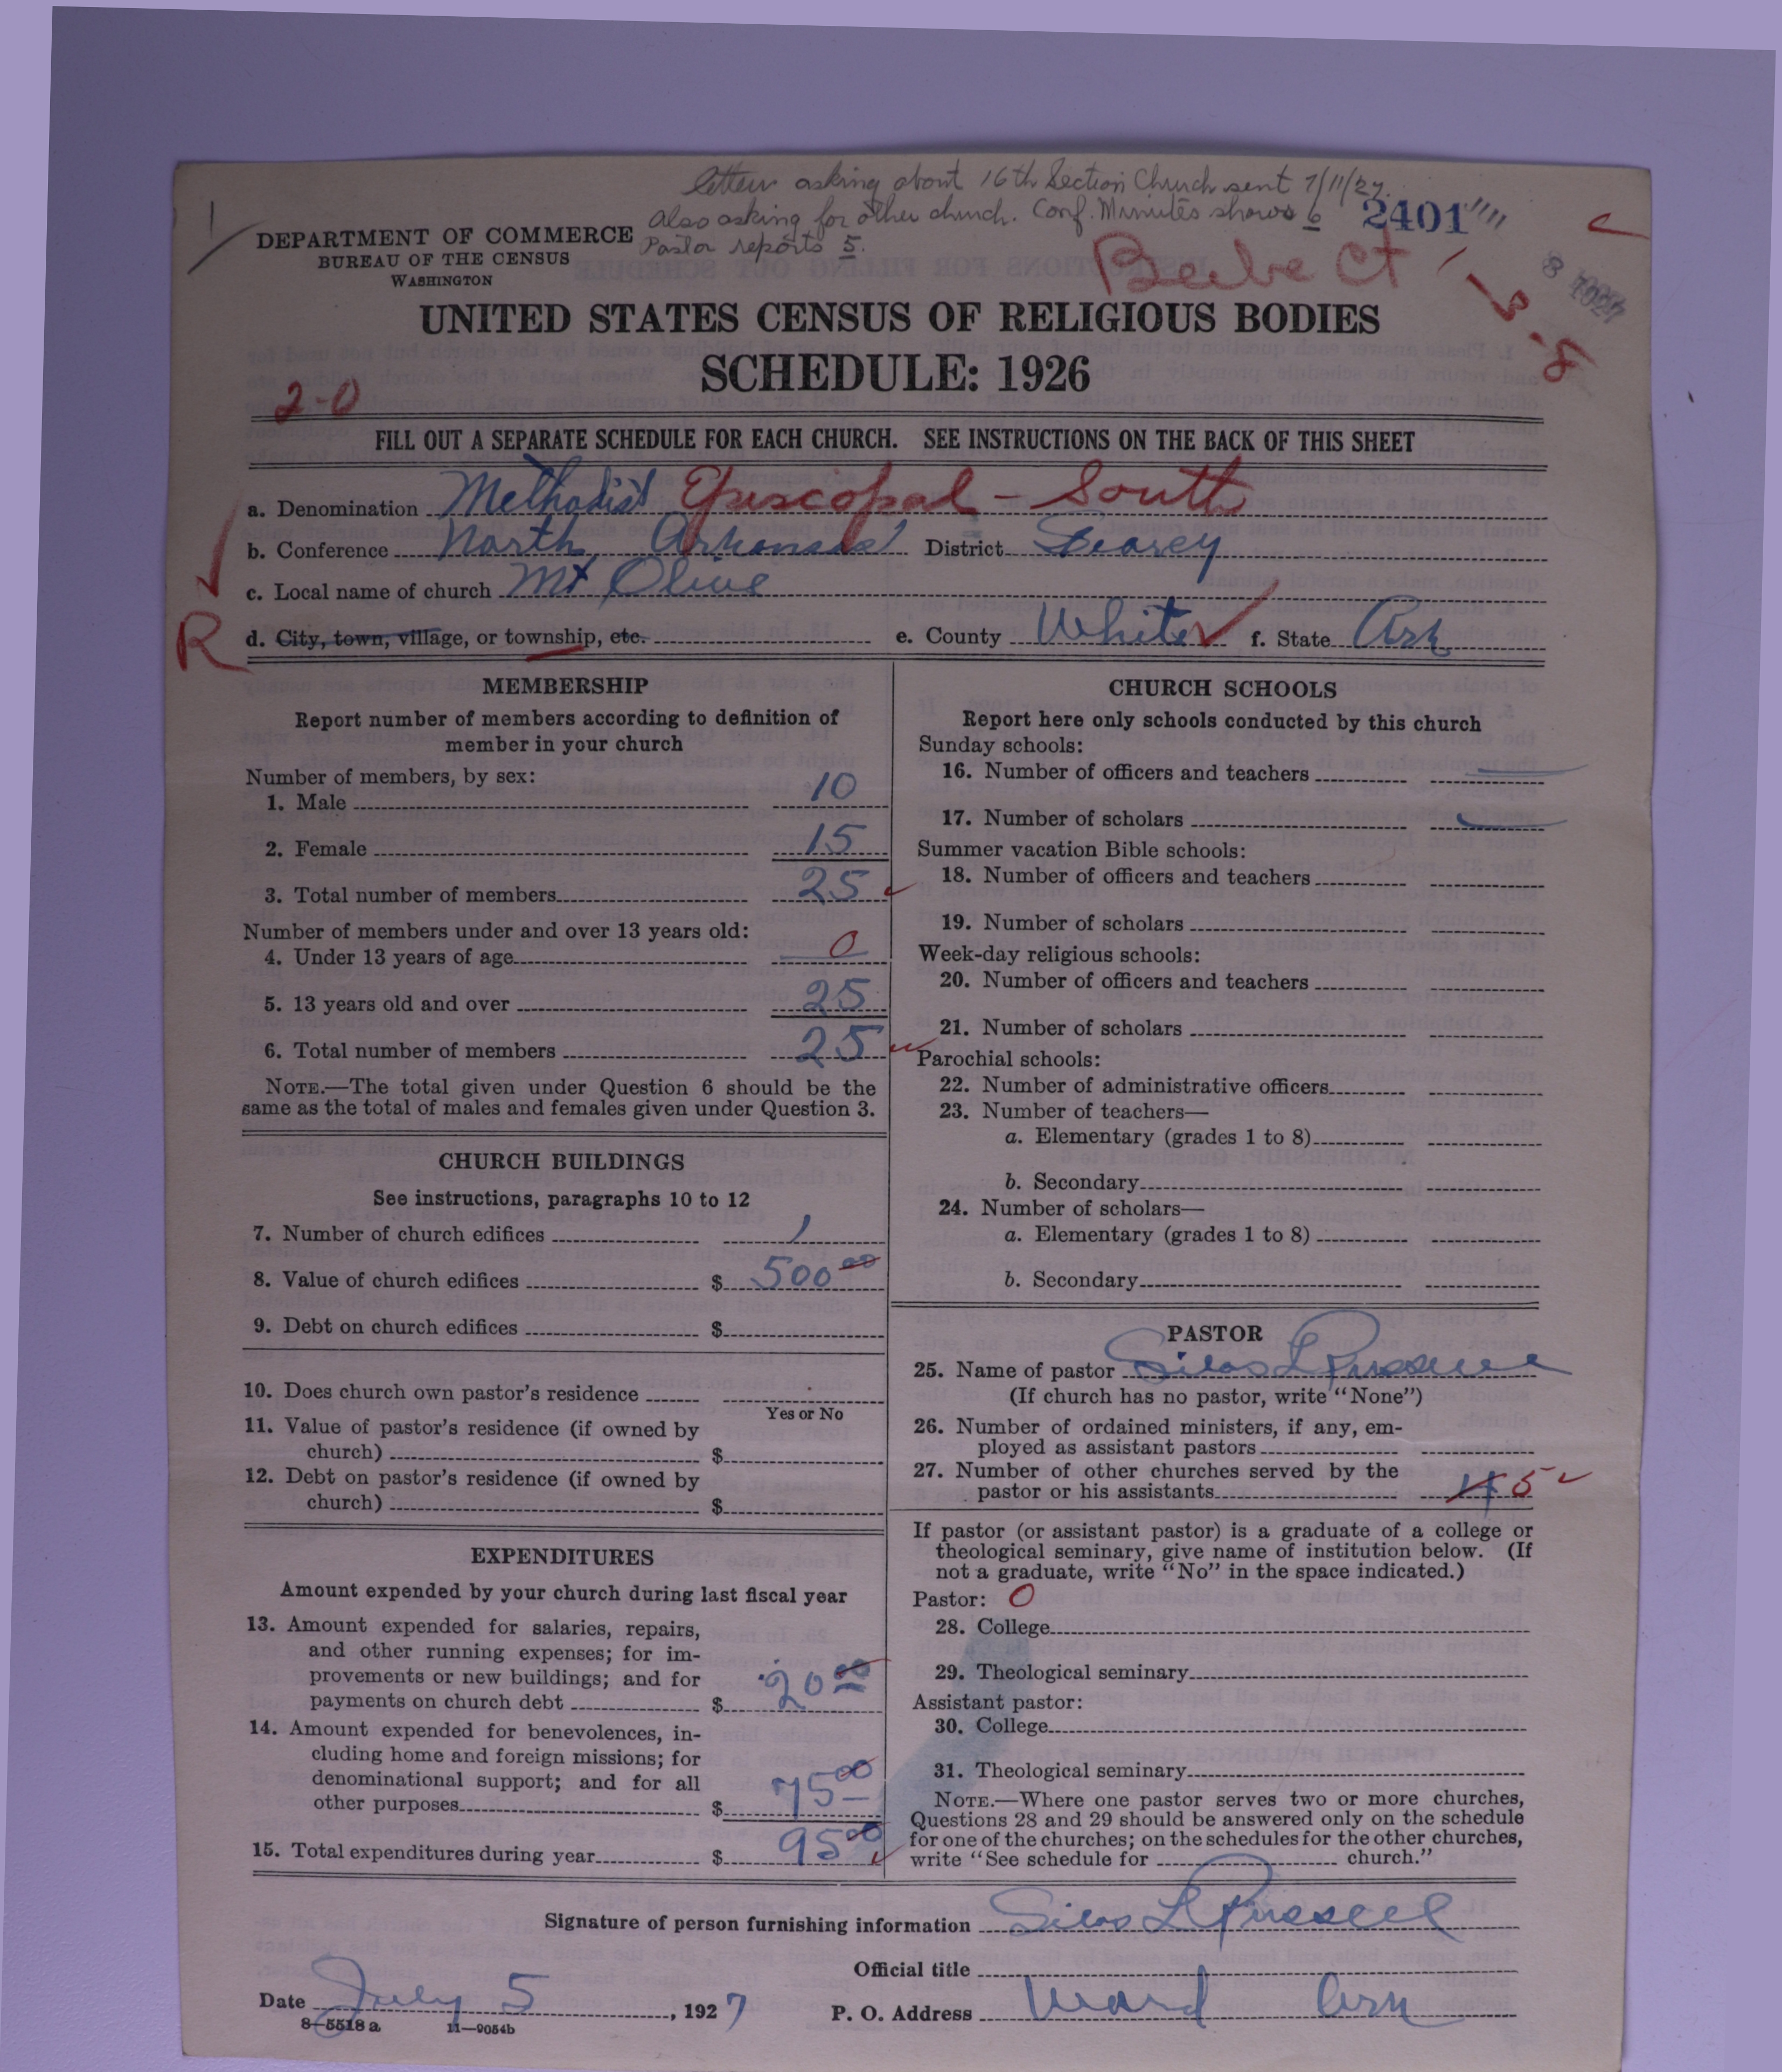 letter asking about 16th Section Church sent 7/11/27.
Also asking for other church. Conf. Minutes shows 6
Pastor reports 5.
2401
DEPARTMENT OF COMMERCE
BUREAU OF THE CENSUS
WASHINGTON
Beebe Ct
UNITED STATES CENSUS OF RELIGIOUS BODIES
SCHEDULE: 1926
2-0
FILL OUT A SEPARATE SCHEDULE FOR EACH CHURCH. SEE INSTRUCTIONS ON THE BACK OF THIS SHEET
a. Denomination Methodist Episcopal - South
b. Conference North Arkansas District Searcy
c. Local name of church Mt Olive
R
d. City, town, village, or township, etc. e. County White f. State Ark
MEMBERSHIP
Report number of members according to definition of
member in your church
Number of members, by sex:
1. Male 10
2. Female 15
3. Total number of members 25
Number of members under and over 13 years old:
4. Under 13 years of age 0
5. 13 years old and over 25
6. Total number of members 25
NOTE.—The total given under Question 6 should be the
same as the total of males and females given under Question 3.
CHURCH BUILDINGS
See instructions, paragraphs 10 to 12
7. Number of church edifices 1
8. Value of church edifices $ 500 00
9. Debt on church edifices $
10. Does church own pastor's residence
Yes or No
11. Value of pastor's residence (if owned by
church) $
12. Debt on pastor's residence (if owned by
church) $
EXPENDITURES
Amount expended by your church during last fiscal year
13. Amount expended for salaries, repairs,
and other running expenses; for im-
provements or new buildings; and for
payments on church debt $ 20 00
14. Amount expended for benevolences, in-
cluding home and foreign missions; for
denominational support; and for all
other purposes $ 75 00
15. Total expenditures during year $ 95 00
CHURCH SCHOOLS
Report here only schools conducted by this church
Sunday schools:
16. Number of officers and teachers
17. Number of scholars
Summer vacation Bible schools:
18. Number of officers and teachers
19. Number of scholars
Week-day religious schools:
20. Number of officers and teachers
21. Number of scholars
Parochial schools:
22. Number of administrative officers
23. Number of teachers—
a. Elementary (grades 1 to 8)
b. Secondary
24. Number of scholars—
a. Elementary (grades 1 to 8)
b. Secondary
PASTOR
25. Name of pastor Silas L Russell
(If church has no pastor, write "None")
26. Number of ordained ministers, if any, em-
ployed as assistant pastors
27. Number of other churches served by the
pastor or his assistants 4 5
If pastor (or assistant pastor) is a graduate of a college or
theological seminary, give name of institution below. (If
not a graduate, write "No" in the space indicated.)
Pastor: 0
28. College
29. Theological seminary
Assistant pastor:
30. College
31. Theological seminary
NOTE.—Where one pastor serves two or more churches,
Questions 28 and 29 should be answered only on the schedule
for one of the churches; on the schedules for the other churches,
write "See schedule for church."
Signature of person furnishing information Silas L Russell
Official title
Date July 5, 1927 P. O. Address Ward Ark
8—5518 a 11—9054b